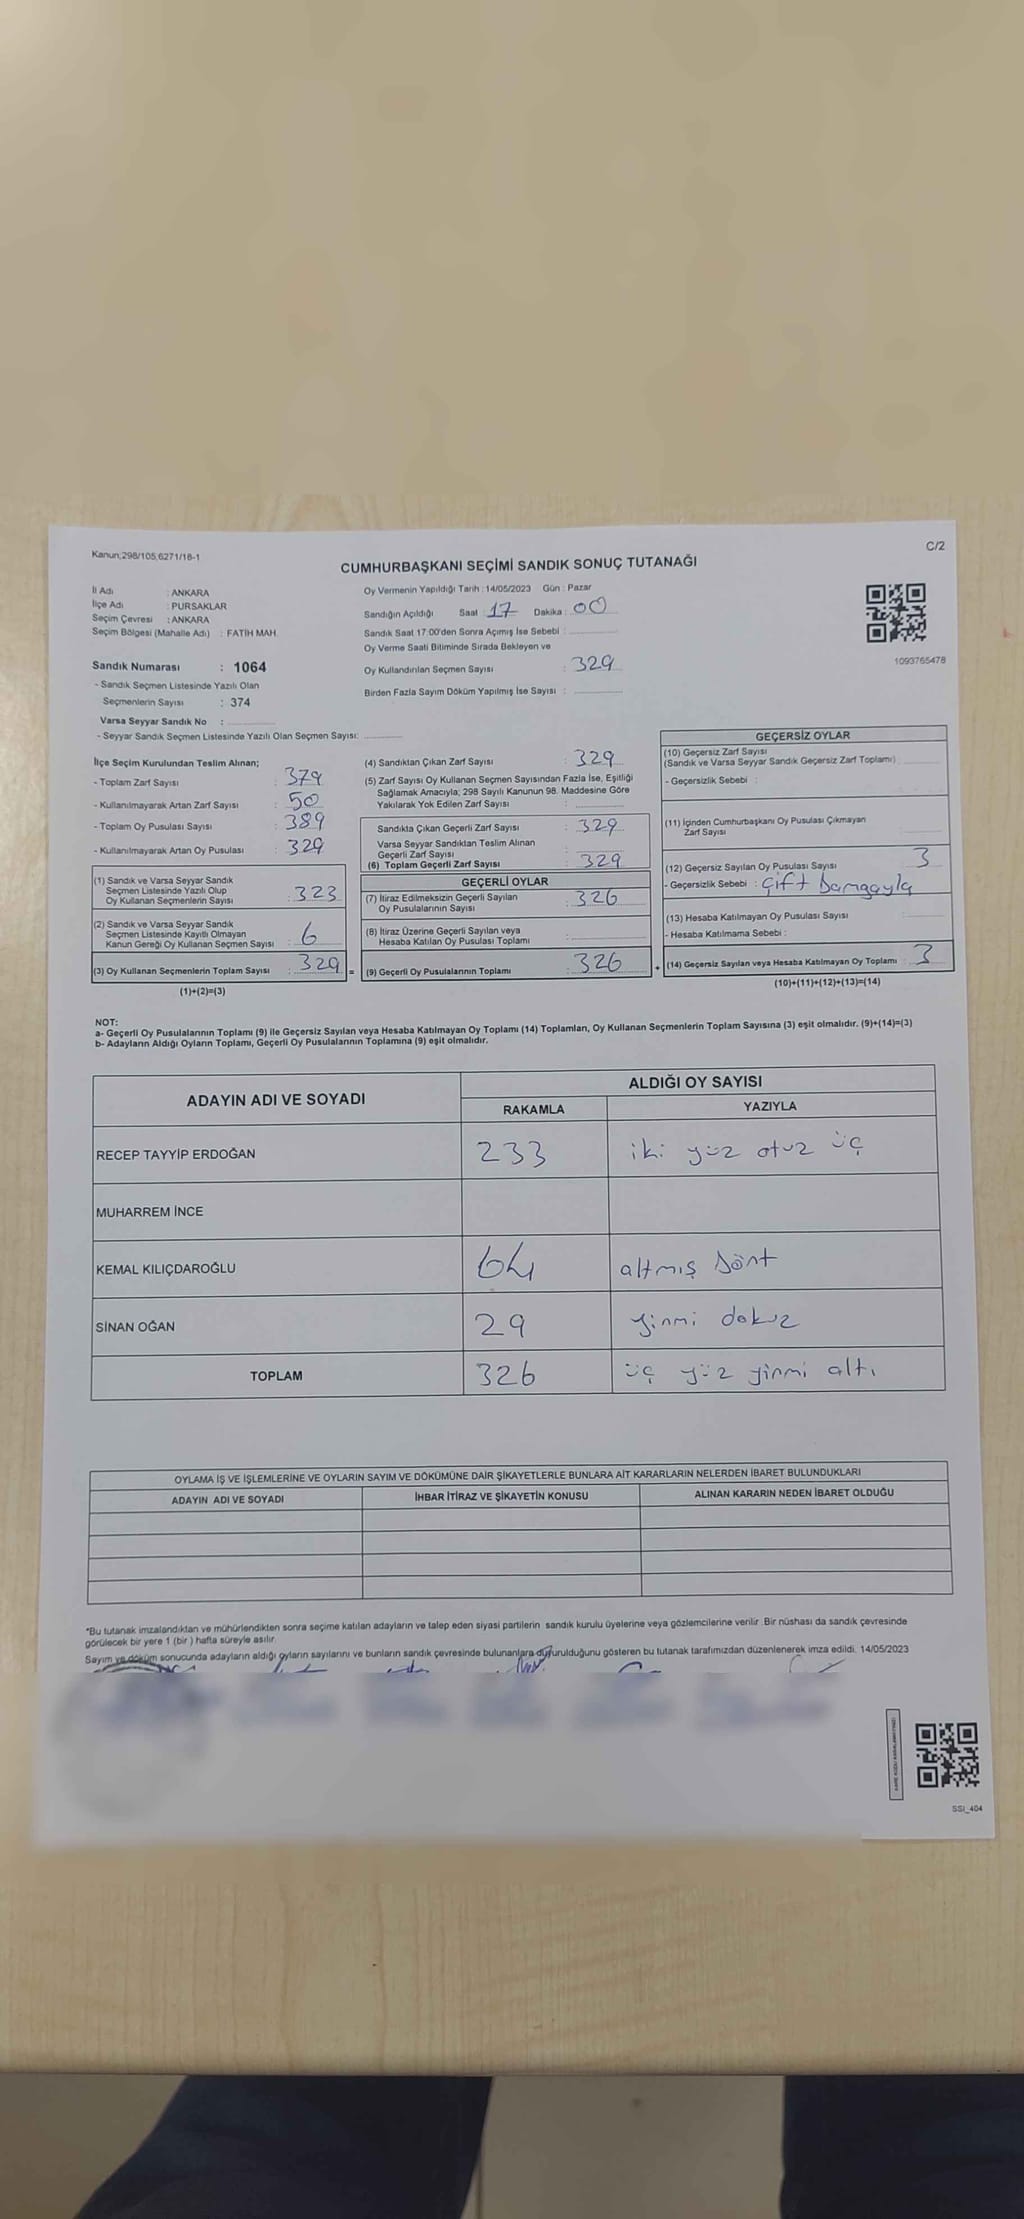 Kanun;298/105,6271/18-1
C/2
CUMHURBAŞKANI SEÇİMİ SANDIK SONUÇ TUTANAĞI
İl Adı : ANKARA
İlçe Adı : PURSAKLAR
Seçim Çevresi : ANKARA
Seçim Bölgesi (Mahalle Adı) : FATİH MAH.
Sandık Numarası : 1064
- Sandık Seçmen Listesinde Yazılı Olan
Seçmenlerin Sayısı : 374
Varsa Seyyar Sandık No :
- Seyyar Sandık Seçmen Listesinde Yazılı Olan Seçmen Sayısı:
Oy Vermenin Yapıldığı Tarih : 14/05/2023 Gün : Pazar
Sandığın Açıldığı Saat : 17 Dakika : 00
Sandık Saat 17:00'den Sonra Açılmış İse Sebebi :
Oy Verme Saati Bitiminde Sırada Bekleyen ve
Oy Kullandırılan Seçmen Sayısı : 329
Birden Fazla Sayım Döküm Yapılmış İse Sayısı :
1093765478
İlçe Seçim Kurulundan Teslim Alınan;
- Toplam Zarf Sayısı : 379
- Kullanılmayarak Artan Zarf Sayısı : 50
- Toplam Oy Pusulası Sayısı : 389
- Kullanılmayarak Artan Oy Pusulası : 329
(1) Sandık ve Varsa Seyyar Sandık
Seçmen Listesinde Yazılı Olup
Oy Kullanan Seçmenlerin Sayısı : 323
(2) Sandık ve Varsa Seyyar Sandık
Seçmen Listesinde Kayıtlı Olmayan
Kanun Gereği Oy Kullanan Seçmen Sayısı : 6
(3) Oy Kullanan Seçmenlerin Toplam Sayısı : 329 =
(1)+(2)=(3)
(4) Sandıktan Çıkan Zarf Sayısı : 329
(5) Zarf Sayısı Oy Kullanan Seçmen Sayısından Fazla İse, Eşitliği
Sağlamak Amacıyla; 298 Sayılı Kanunun 98. Maddesine Göre
Yakılarak Yok Edilen Zarf Sayısı :
Sandıkta Çıkan Geçerli Zarf Sayısı : 329
Varsa Seyyar Sandıktan Teslim Alınan
Geçerli Zarf Sayısı :
(6) Toplam Geçerli Zarf Sayısı : 329
GEÇERLİ OYLAR
(7) İtiraz Edilmeksizin Geçerli Sayılan
Oy Pusulalarının Sayısı : 326
(8) İtiraz Üzerine Geçerli Sayılan veya
Hesaba Katılan Oy Pusulası Toplamı :
(9) Geçerli Oy Pusulalarının Toplamı : 326 +
GEÇERSİZ OYLAR
(10) Geçersiz Zarf Sayısı
(Sandık ve Varsa Seyyar Sandık Geçersiz Zarf Toplamı) :
- Geçersizlik Sebebi :
(11) İçinden Cumhurbaşkanı Oy Pusulası Çıkmayan
Zarf Sayısı :
(12) Geçersiz Sayılan Oy Pusulası Sayısı : 3
- Geçersizlik Sebebi : Çift Damgayla
(13) Hesaba Katılmayan Oy Pusulası Sayısı :
- Hesaba Katılmama Sebebi :
(14) Geçersiz Sayılan veya Hesaba Katılmayan Oy Toplamı : 3
(10)+(11)+(12)+(13)=(14)
NOT:
a- Geçerli Oy Pusulalarının Toplamı (9) ile Geçersiz Sayılan veya Hesaba Katılmayan Oy Toplamı (14) Toplamları, Oy Kullanan Seçmenlerin Toplam Sayısına (3) eşit olmalıdır. (9)+(14)=(3)
b- Adayların Aldığı Oyların Toplamı, Geçerli Oy Pusulalarının Toplamına (9) eşit olmalıdır.
ADAYIN ADI VE SOYADI
ALDIĞI OY SAYISI
RAKAMLA YAZIYLA
RECEP TAYYİP ERDOĞAN 233 iki yüz otuz üç
MUHARREM İNCE
KEMAL KILIÇDAROĞLU 64 altmış dört
SİNAN OĞAN 29 yirmi dokuz
TOPLAM 326 üç yüz yirmi altı
OYLAMA İŞ VE İŞLEMLERİNE VE OYLARIN SAYIM VE DÖKÜMÜNE DAİR ŞİKAYETLERLE BUNLARA AİT KARARLARIN NELERDEN İBARET BULUNDUKLARI
ADAYIN ADI VE SOYADI İHBAR İTİRAZ VE ŞİKAYETİN KONUSU ALINAN KARARIN NEDEN İBARET OLDUĞU
*Bu tutanak imzalandıktan ve mühürlendikten sonra seçime katılan adayların ve talep eden siyasi partilerin sandık kurulu üyelerine veya gözlemcilerine verilir. Bir nüshası da sandık çevresinde
görülecek bir yere 1 (bir ) hafta süreyle asılır.
Sayım ve döküm sonucunda adayların aldığı oyların sayılarını ve bunların sandık çevresinde bulunanlara duyurulduğunu gösteren bu tutanak tarafımızdan düzenlenerek imza edildi. 14/05/2023
SSI_404